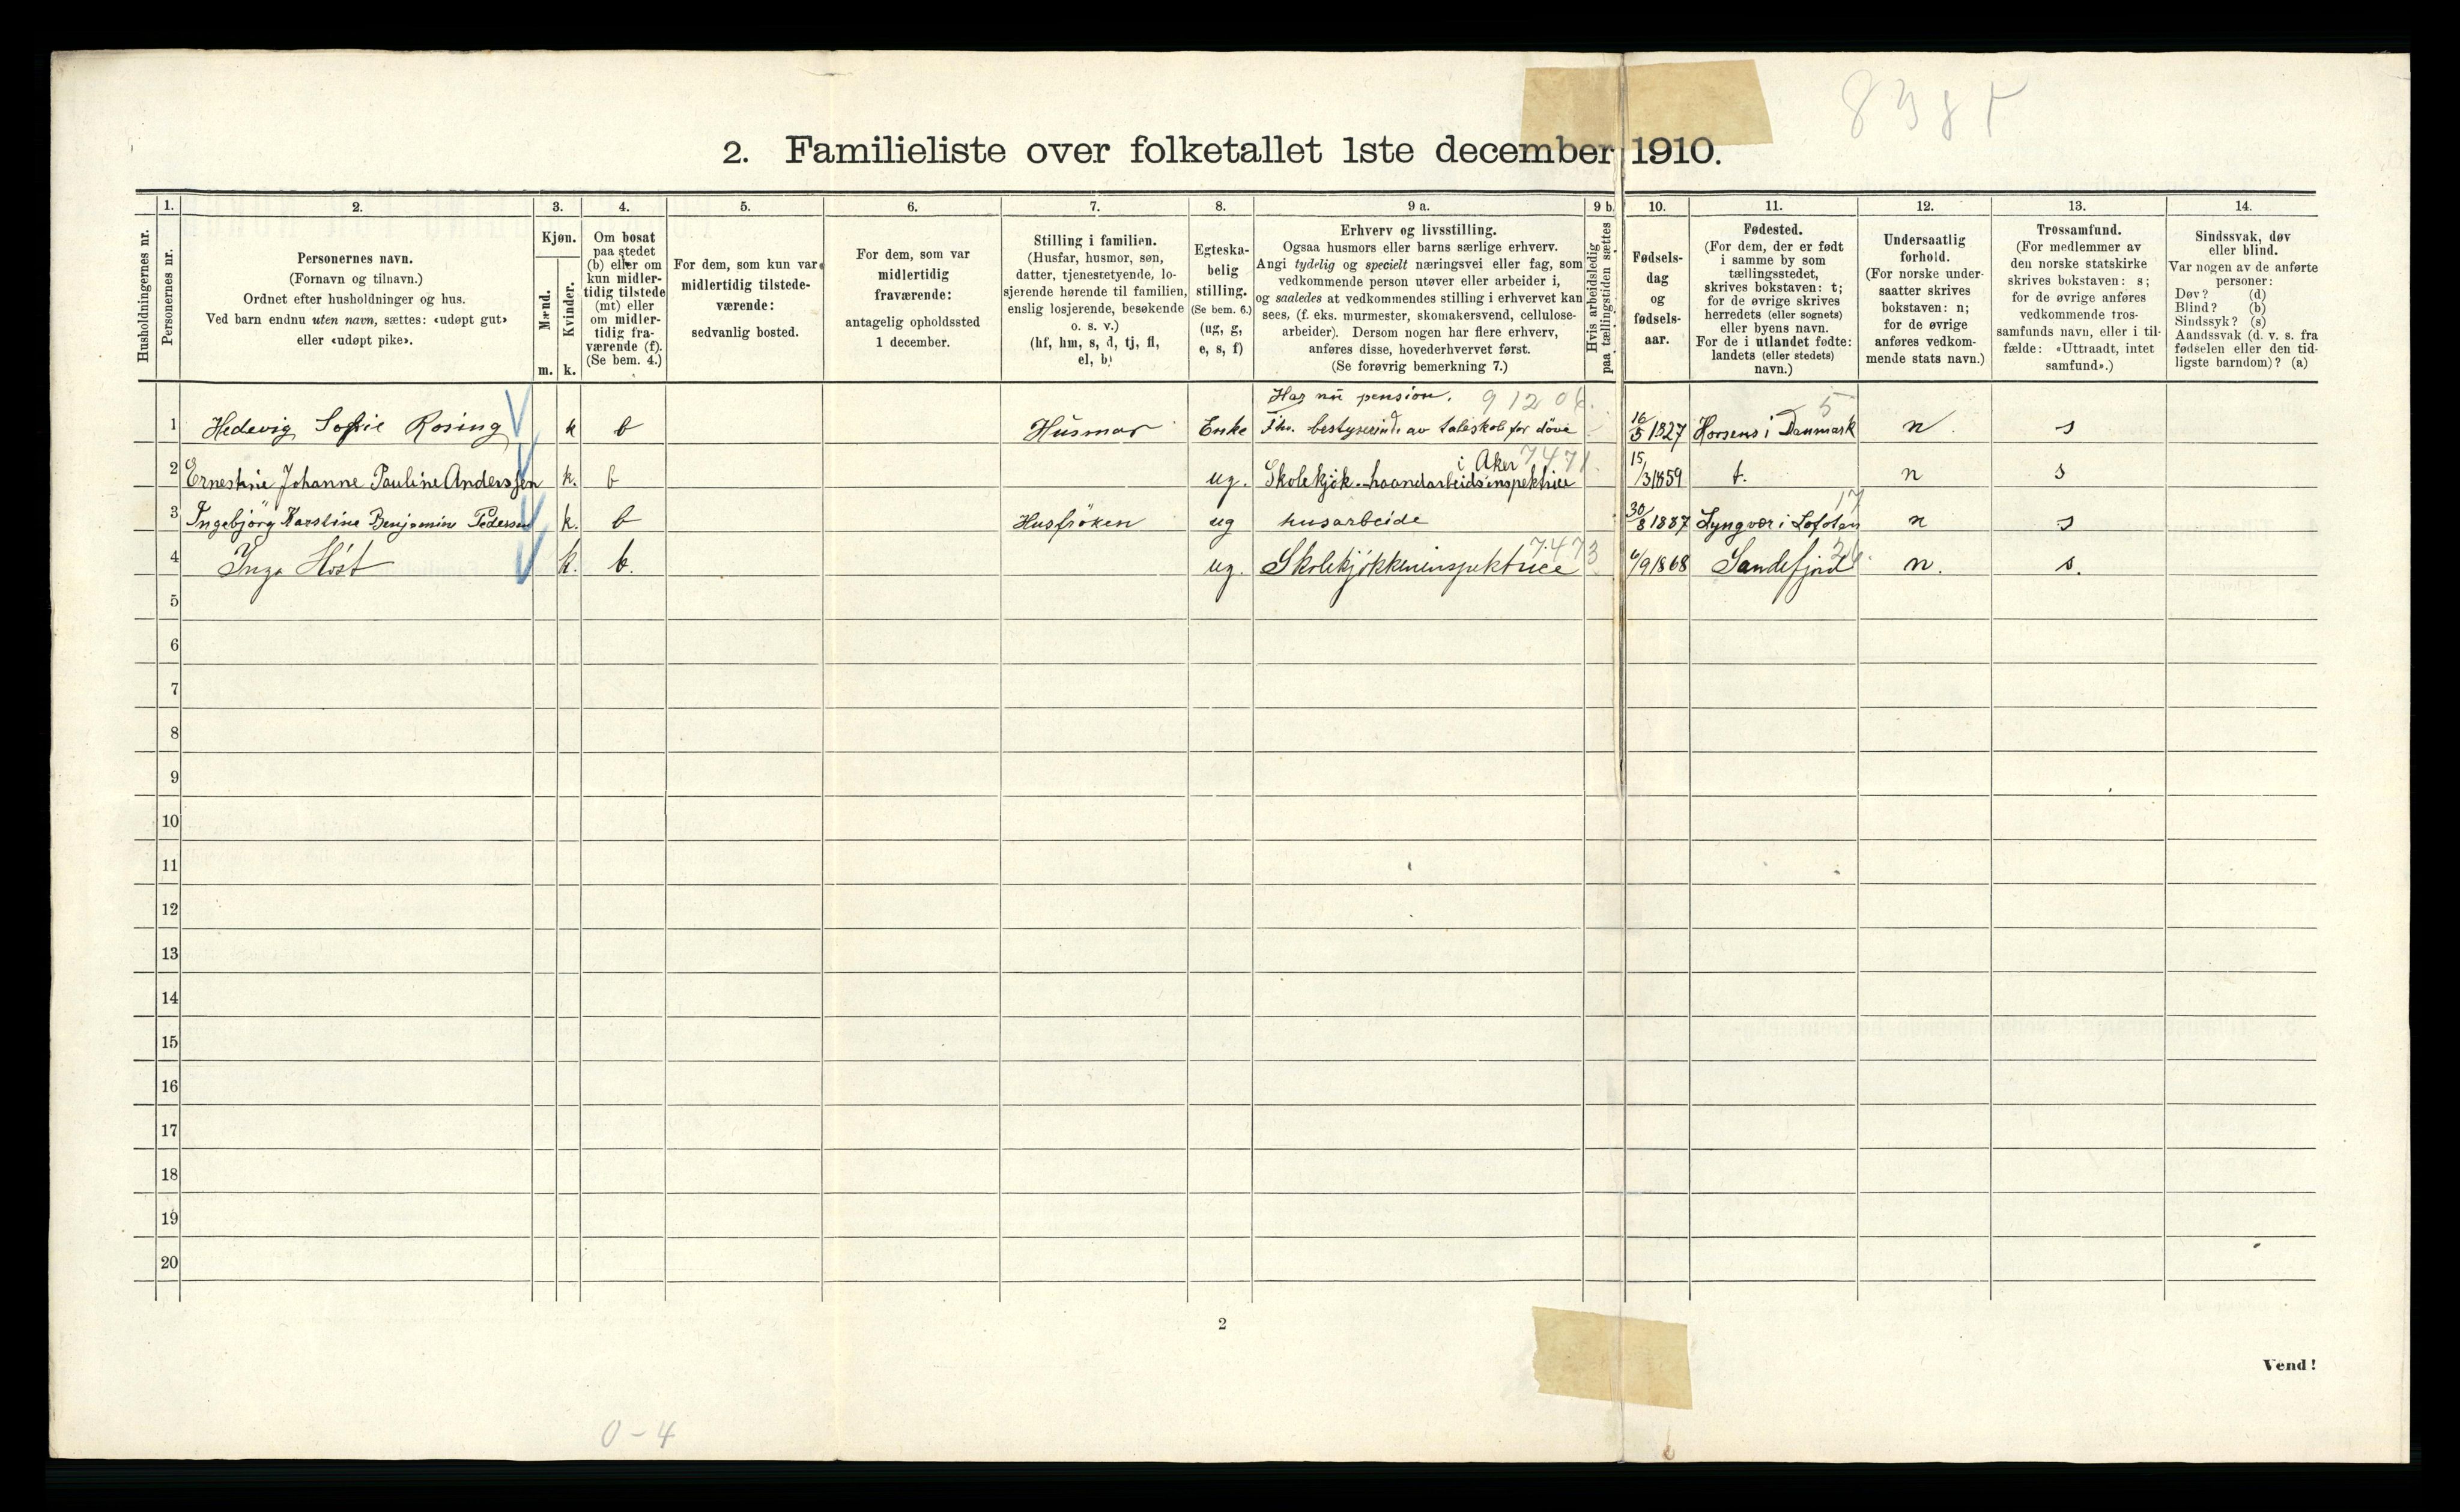 8385
2. Familieliste over folketallet 1ste december 1910.
1. 2. 3. 4. 5. 6. 7. 8. 9 a. 9 b. 10. 11. 12. 13. 14.
Husholdningernes nr.
Personernes nr.
Personernes navn.
(Fornavn og tilnavn.)
Ordnet efter husholdninger og hus.
Ved barn endnu uten navn, sættes: «udøpt gut»
eller «udøpt pike».
Kjøn.
Mænd.
Kvinder.
m. k.
Om bosat
paa stedet
(b) eller om
kun midler-
tidig tilstede
(mt) eller
om midler-
tidig fra-
værende (f).
(Se bem. 4.)
For dem, som kun var
midlertidig tilstede-
værende:
sedvanlig bosted.
For dem, som var
midlertidig
fraværende:
antagelig opholdssted
1 december.
Stilling i familien.
(Husfar, husmor, søn,
datter, tjenestetyende, lo-
sjerende hørende til familien,
enslig losjerende, besøkende
o. s. v.)
(hf, hm, s, d, tj, fl,
el, b)
Egteska-
belig
stilling.
(Se bem. 6.)
(ug, g,
e, s, f)
Erhverv og livsstilling.
Ogsaa husmors eller barns særlige erhverv.
Angi tydelig og specielt næringsvei eller fag, som
vedkommende person utøver eller arbeider i,
og saaledes at vedkommendes stilling i erhvervet kan
sees, (f. eks. murmester, skomakersvend, cellulose-
arbeider). Dersom nogen har flere erhverv,
anføres disse, hovederhvervet først.
(Se forøvrig bemerkning 7.)
Hvis arbeidsledig
paa tællingstiden sættes
Fødsels-
dag
og
fødsels-
aar.
Fødested.
(For dem, der er født
i samme by som
tællingsstedet,
skrives bokstaven: t;
for de øvrige skrives
herredets (eller sognets)
eller byens navn.
For de i utlandet fødte:
landets (eller stedets)
navn.)
Undersaatlig
forhold.
(For norske under-
saatter skrives
bokstaven: n;
for de øvrige
anføres vedkom-
mende stats navn.)
Trossamfund.
(For medlemmer av
den norske statskirke
skrives bokstaven: s;
for de øvrige anføres
vedkommende tros-
samfunds navn, eller i til-
fælde: «Uttraadt, intet
samfund».)
Sindssvak, døv
eller blind.
Var nogen av de anførte
personer:
Døv? (d)
Blind? (b)
Sindssyk? (s)
Aandssvak (d. v. s. fra
fødselen eller den tid-
ligste barndom)? (a)
Har nu pension. 9 12 06. 5
1 Hedevig Sofie Rosing k b Husmor Enke Fhv. bestyrerinde av taleskole for döve 16/5 1827 Horsens i Danmark n s
i Aker 7471.
2 Ernestine Johanne Pauline Anderssen k. b ug. Skolekjök. haandarbeidsinspektrice 15/3 1859 t. n s
17
3 Ingebjörg Karstine Benjamine Pedersen k. b Husfröken ug husarbeide 30/8 1887 Lyngvær i Lofoten n s
7.473 26.
4 Inga Höst k. b. ug. Skolekjökkeninspektrice 4/9 1868 Sandefjord n. s.
5
6
7
8
9
10
11
12
13
14
15
16
17
18
19
20
2
Vend!
0-4